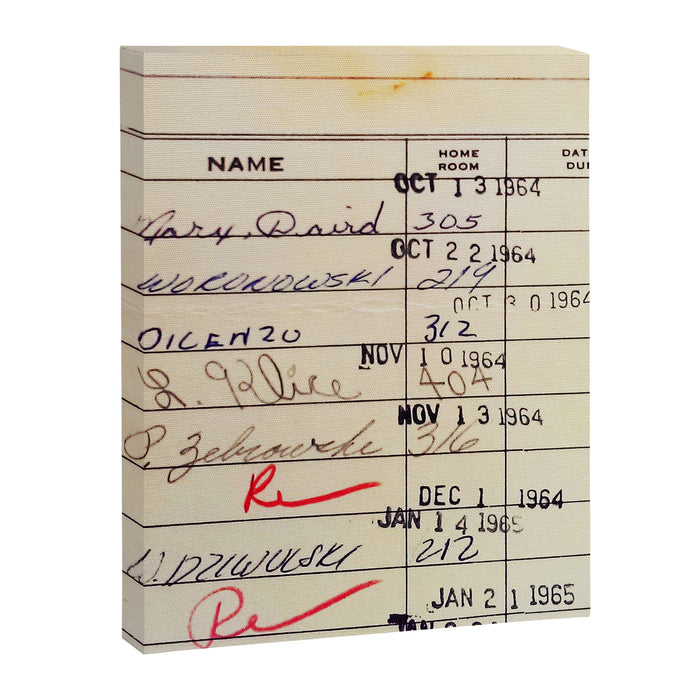 NAME HOME ROOM DAT DUE
OCT 1 3 1964
Marx, David 305
OCT 2 2 1964
WORONOWSKI 219
OCT 3 0 1964
DICENZO 312
NOV 1 0 1964
404
NOV 1 3 1964
P. Zebrowski 316
Re
DEC 1 1964
JAN 1 4 1965
W. DZIWULSKI 212
Re
JAN 2 1 1965